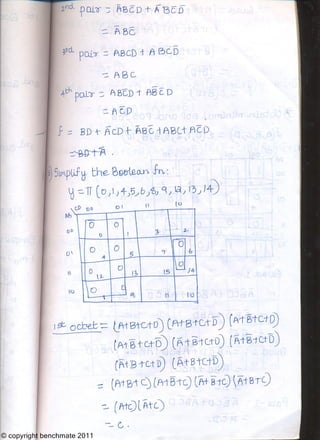 2nd pair = ĀBC̄D + ĀBC̄D̄
= ĀBC̄
3rd pair = ABCD + ABCD̄
= ABC
4th pair = ABC̄D + AB̄C̄D
= AC̄D
F = BD + ĀCD + ĀBC̄ + ABC + AC̄D
Simplify the Boolean fn:
y = Π (0,1,4,5,6,8,9,12,13,14)
AB CD 00 01 11 10
00 0 0 0 1 3 2
01 0 4 0 5 7 0 6
11 0 12 0 13 15 0 14
10 0 8 0 9 11 10
1st octet = (A+B+C+D) (A+B+C+D̄) (A+B̄+C+D)
(A+B̄+C+D̄) (Ā+B̄+C+D) (Ā+B̄+C+D̄)
(Ā+B+C+D) (Ā+B+C+D̄)
= (A+B+C) (A+B̄+C) (Ā+B̄+C) (Ā+B+C)
= (A+C) (Ā+C)
= C.
© copyright benchmate 2011